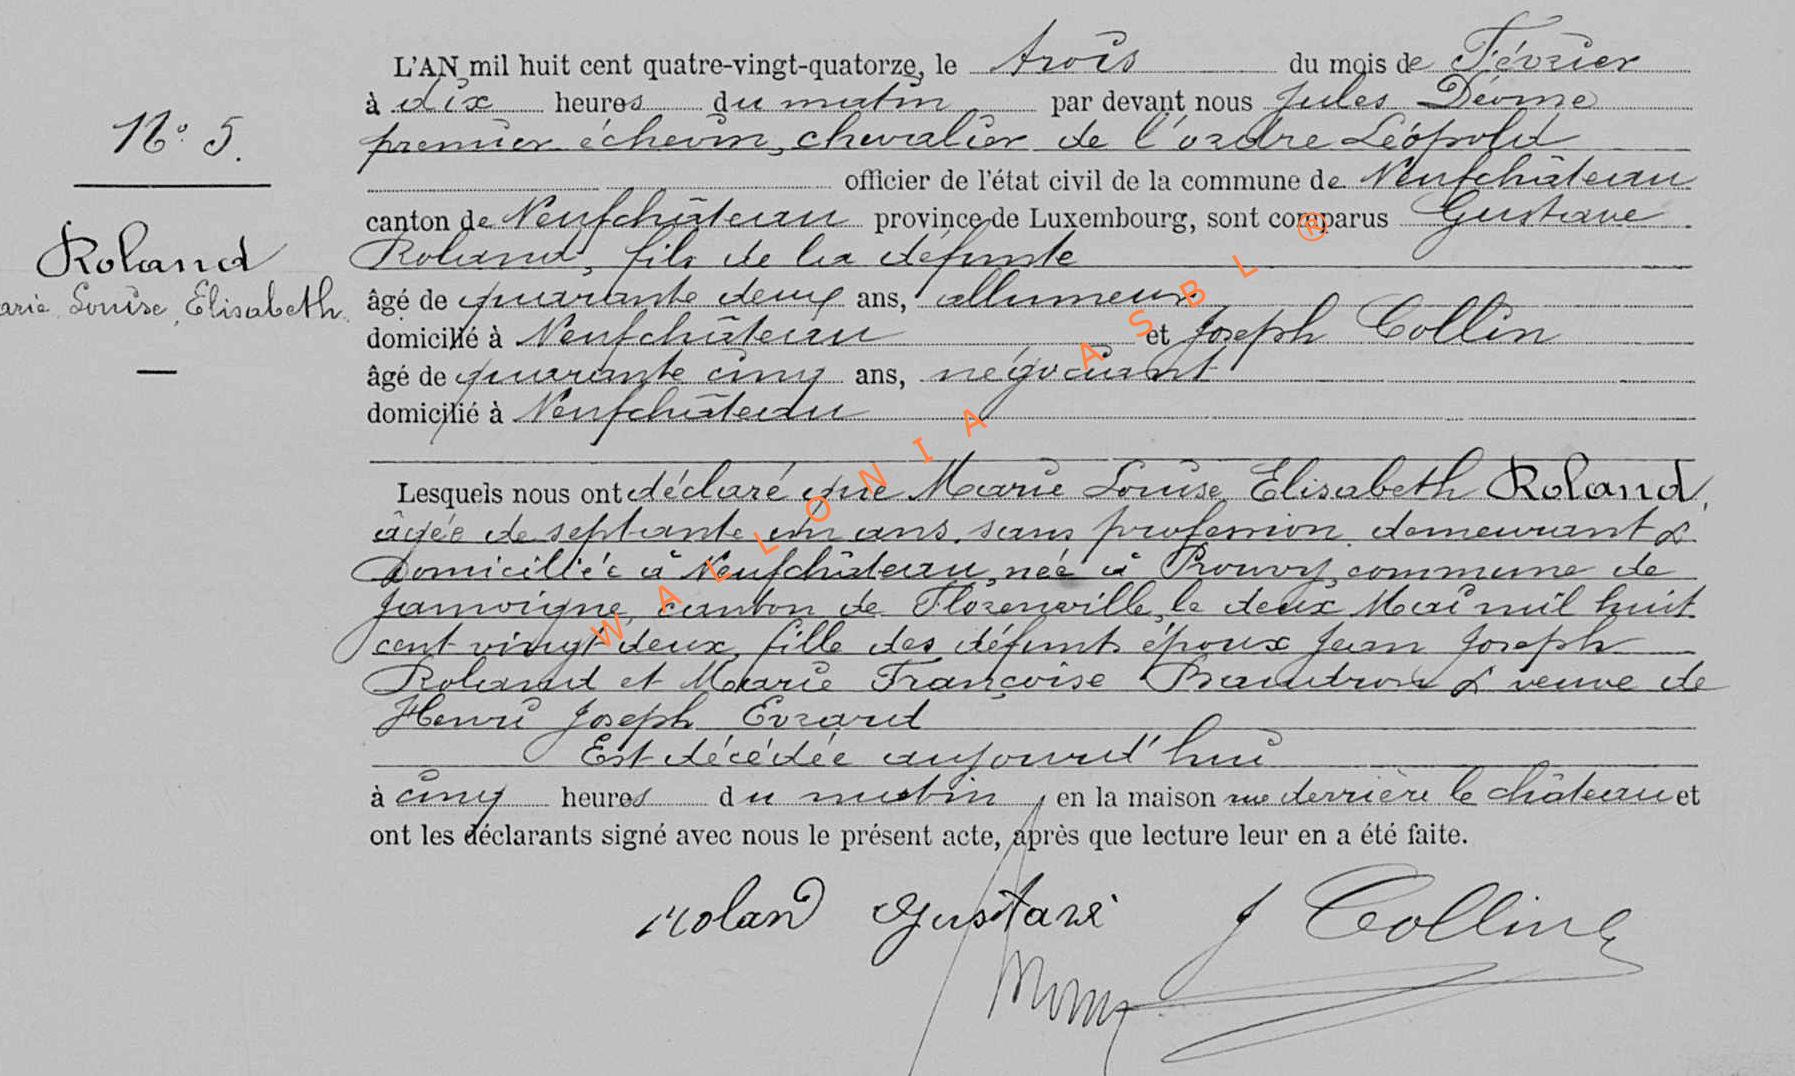 L'AN mil huit cent quatre-vingt-quatorze, le trois du mois de Février
à dix heures du matin par devant nous Jules
premier échevin, chevalier de l'ordre Léopold
officier de l'état civil de la commune de Neufchâteau
canton de Neufchâteau province de Luxembourg, sont comparus Gustave
Roland, fils de la défunte
âgé de quarante deux ans, allumeur
domicilié à Neufchâteau et Joseph Collin
âgé de quarante cinq ans, négociant
domicilié à Neufchâteau
N° 5.
Roland
arie Louise, Elisabeth.
Lesquels nous ont déclaré que Marie Louise Elisabeth Roland,
âgée de septante un ans, sans profession, demeurant &
Domiciliée à Neufchâteau, née à Prouvy, commune de
Jamoigne, canton de Florenville, le deux Mai mil huit
cent vingt deux, fille des défunts époux Jean Joseph
Roland et Marie Françoise Baudron & veuve de
Henri Joseph Evrard
Est décédée aujourd'hui
à cinq heures du matin, en la maison rue derrière le château et
ont les déclarants signé avec nous le présent acte, après que lecture leur en a été faite.
roland gustave J Collin
WALLONIA ASBL ®